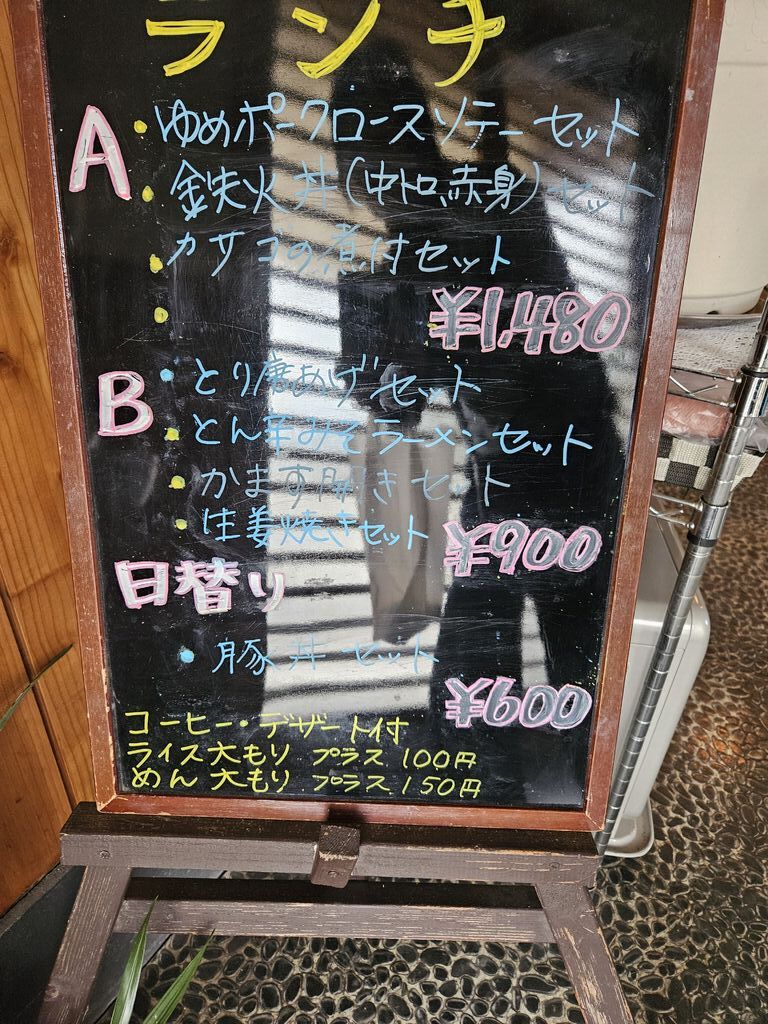 ランチ
A ・ゆめポークロースソテーセット
・鉄火丼(中トロ、赤身)セット
・カサゴの煮付セット
・
¥1,480
B ・とり唐あげセット
・とん辛みそラーメンセット
・かます開きセット
・生姜焼きセット
¥900
日替り
・豚丼セット
¥600
コーヒー・デザート付
ライス大もり プラス 100円
めん大もり プラス 150円